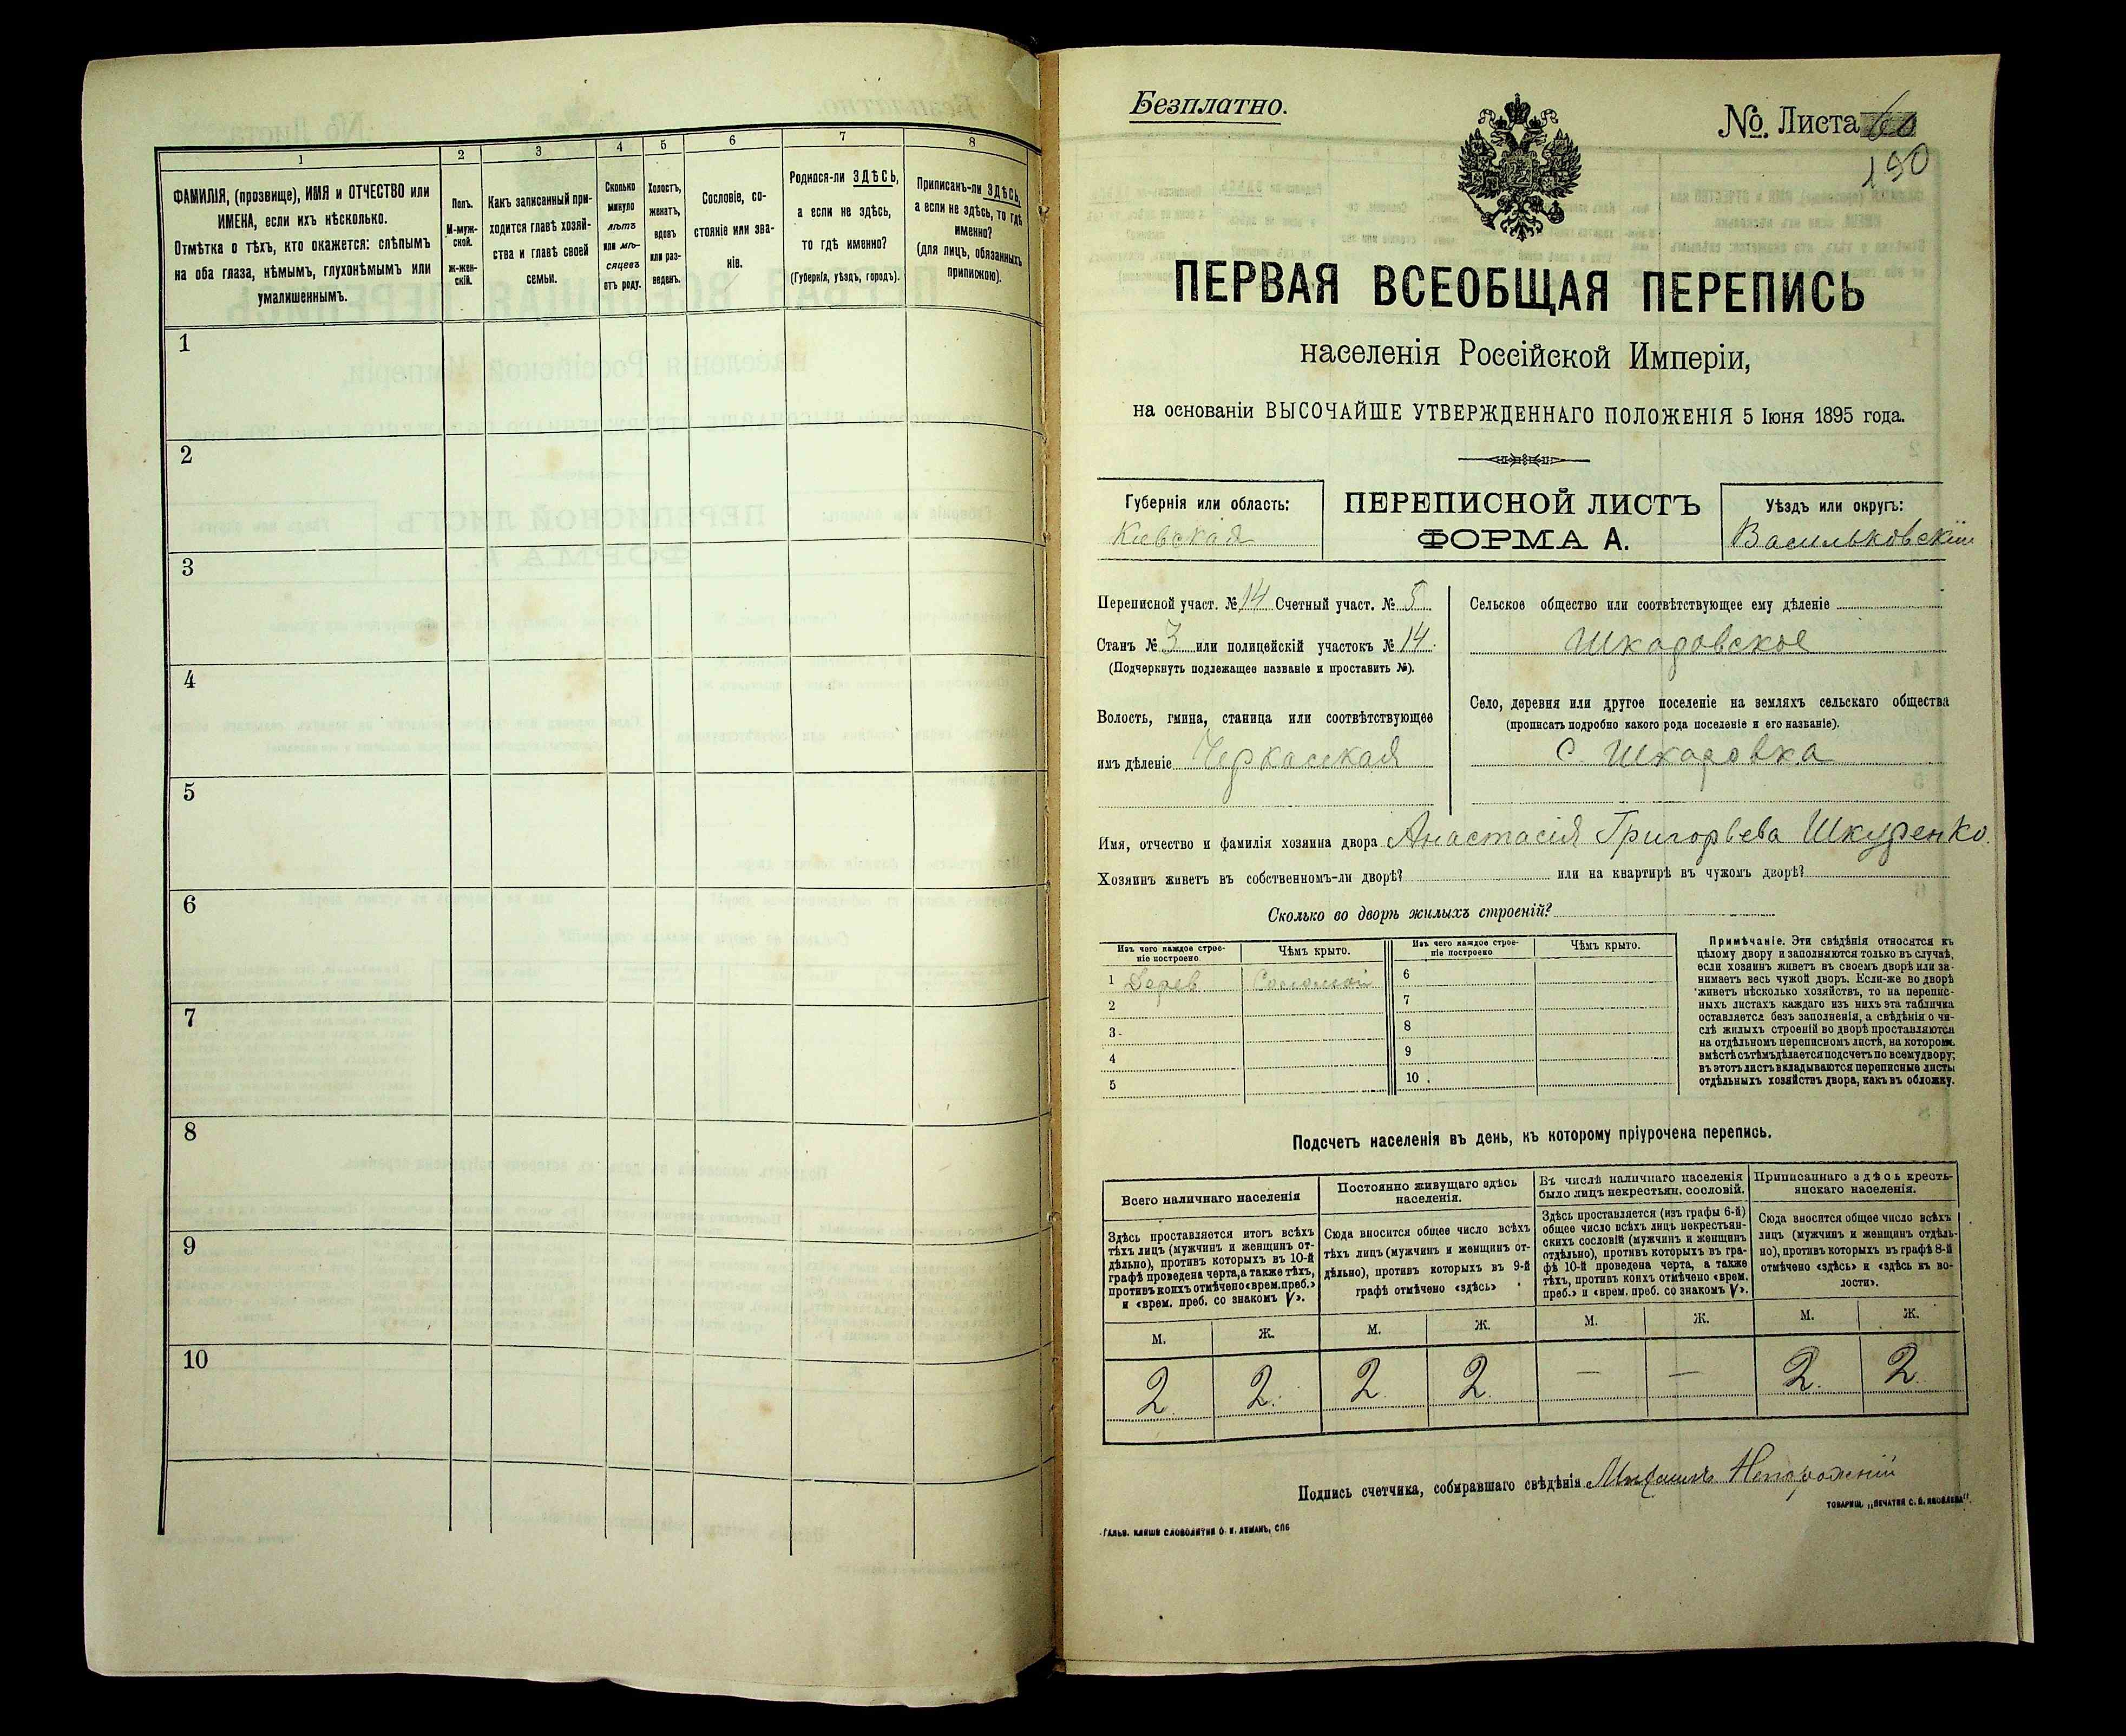 1
2
3
4
5
6
7
8
ФАМИЛІЯ, (прозвище), ИМЯ и ОТЧЕСТВО или
ИМЕНА, если ихъ нѣсколько.
Отмѣтка о тѣхъ, кто окажется: слѣпымъ
на оба глаза, нѣмымъ, глухонѣмымъ или
умалишеннымъ.
Полъ.
М-муж-
ской.
ж-жен-
скій.
Какъ записанный при-
ходится главѣ хозяй-
ства и главѣ своей
семьи.
Сколько
минуло
лѣтъ
или мѣ-
сяцевъ
отъ роду.
Холостъ,
женатъ,
вдовъ
или раз-
веденъ.
Сословіе, со-
стояніе или зва-
ніе.
Родился-ли ЗДѢСЬ,
а если не здѣсь,
то гдѣ именно?
(Губернія, уѣздъ, городъ).
Приписанъ-ли ЗДѢСЬ,
а если не здѣсь, то гдѣ
именно?
(для лицъ, обязанныхъ
припискою).
1
2
3
4
5
6
7
8
9
10
Безплатно.
№. Листа 60
190
ПЕРВАЯ ВСЕОБЩАЯ ПЕРЕПИСЬ
населенія Россійской Имперіи,
на основаніи ВЫСОЧАЙШЕ УТВЕРЖДЕННАГО ПОЛОЖЕНІЯ 5 Іюня 1895 года.
Губернія или область:
Кіевская
ПЕРЕПИСНОЙ ЛИСТЪ
ФОРМА А.
Уѣздъ или округъ:
Васильковскій
Переписной участ. № 14 Счетный участ. № 5
Станъ № 3 или полицейскій участокъ № 14.
(Подчеркнуть подлежащее названіе и проставить №).
Волость, гмина, станица или соотвѣтствующее
имъ дѣленіе Черкасская
Сельское общество или соотвѣтствующее ему дѣленіе
Шкаровское
Село, деревня или другое поселеніе на земляхъ сельскаго общества
(прописать подробно какого рода поселеніе и его названіе).
С. Шкаровка
Имя, отчество и фамилія хозяина двора Анастасія Григорьева Шкуренко.
Хозяинъ живетъ въ собственномъ-ли дворѣ? или на квартирѣ въ чужомъ дворѣ?
Сколько во дворѣ жилыхъ строеній?
Изъ чего каждое строе-
ніе построено
Чѣмъ крыто.
Изъ чего каждое строе-
ніе построено
Чѣмъ крыто.
1 Дерев. Соломой
2
3
4
5
6
7
8
9
10
Примѣчаніе. Эти свѣдѣнія относятся къ
цѣлому двору и заполняются только въ случаѣ,
если хозяинъ живетъ въ своемъ дворѣ или за-
нимаетъ весь чужой дворъ. Если-же во дворѣ
живетъ нѣсколько хозяйствъ, то на перепис-
ныхъ листахъ каждаго изъ нихъ эта табличка
оставляется безъ заполненія, а свѣдѣнія о чи-
слѣ жилыхъ строеній во дворѣ проставляются
на отдѣльномъ переписномъ листѣ, на которомъ
вмѣстѣ съ тѣмъ дѣлается подсчетъ по всему двору;
въ этотъ листъ вкладываются переписные листы
отдѣльныхъ хозяйствъ двора, какъ въ обложку.
Подсчетъ населенія въ день, къ которому пріурочена перепись.
Всего наличнаго населенія
Здѣсь проставляется итогъ всѣхъ
тѣхъ лицъ (мужчинъ и женщинъ от-
дѣльно), противъ которыхъ въ 10-й
графѣ проведена черта, а также тѣхъ,
противъ коихъ отмѣчено «врем. преб.»
и «врем. преб. со знакомъ V».
Постоянно живущаго здѣсь
населенія.
Сюда вносится общее число всѣхъ
тѣхъ лицъ (мужчинъ и женщинъ от-
дѣльно), противъ которыхъ въ 9-й
графѣ отмѣчено «здѣсь»
Въ числѣ наличнаго населенія
было лицъ некрестьян. сословій.
Здѣсь проставляется (изъ графы 6-й)
общее число всѣхъ лицъ некрестьян-
скихъ сословій (мужчинъ и женщинъ
отдѣльно), противъ которыхъ въ гра-
фѣ 10-й проведена черта, а также
тѣхъ, противъ коихъ отмѣчено «врем.
преб.» и «врем. преб. со знакомъ V».
Приписаннаго здѣсь кресть-
янскаго населенія.
Сюда вносится общее число всѣхъ
лицъ (мужчинъ и женщинъ отдѣль-
но), противъ которыхъ въ графѣ 8-й
отмѣчено «здѣсь» и «здѣсь въ во-
лости».
М. Ж. М. Ж. М. Ж. М. Ж.
2 2. 2 2. — — 2. 2
Подпись счетчика, собиравшаго свѣдѣнія
ТОВАРИЩ. „ПЕЧАТНЯ С. П. ЯКОВЛЕВА".
ГАЛЬВ. КЛИШЕ СЛОВОЛИТНИ О. И. ЛЕМАНЪ, СПБ